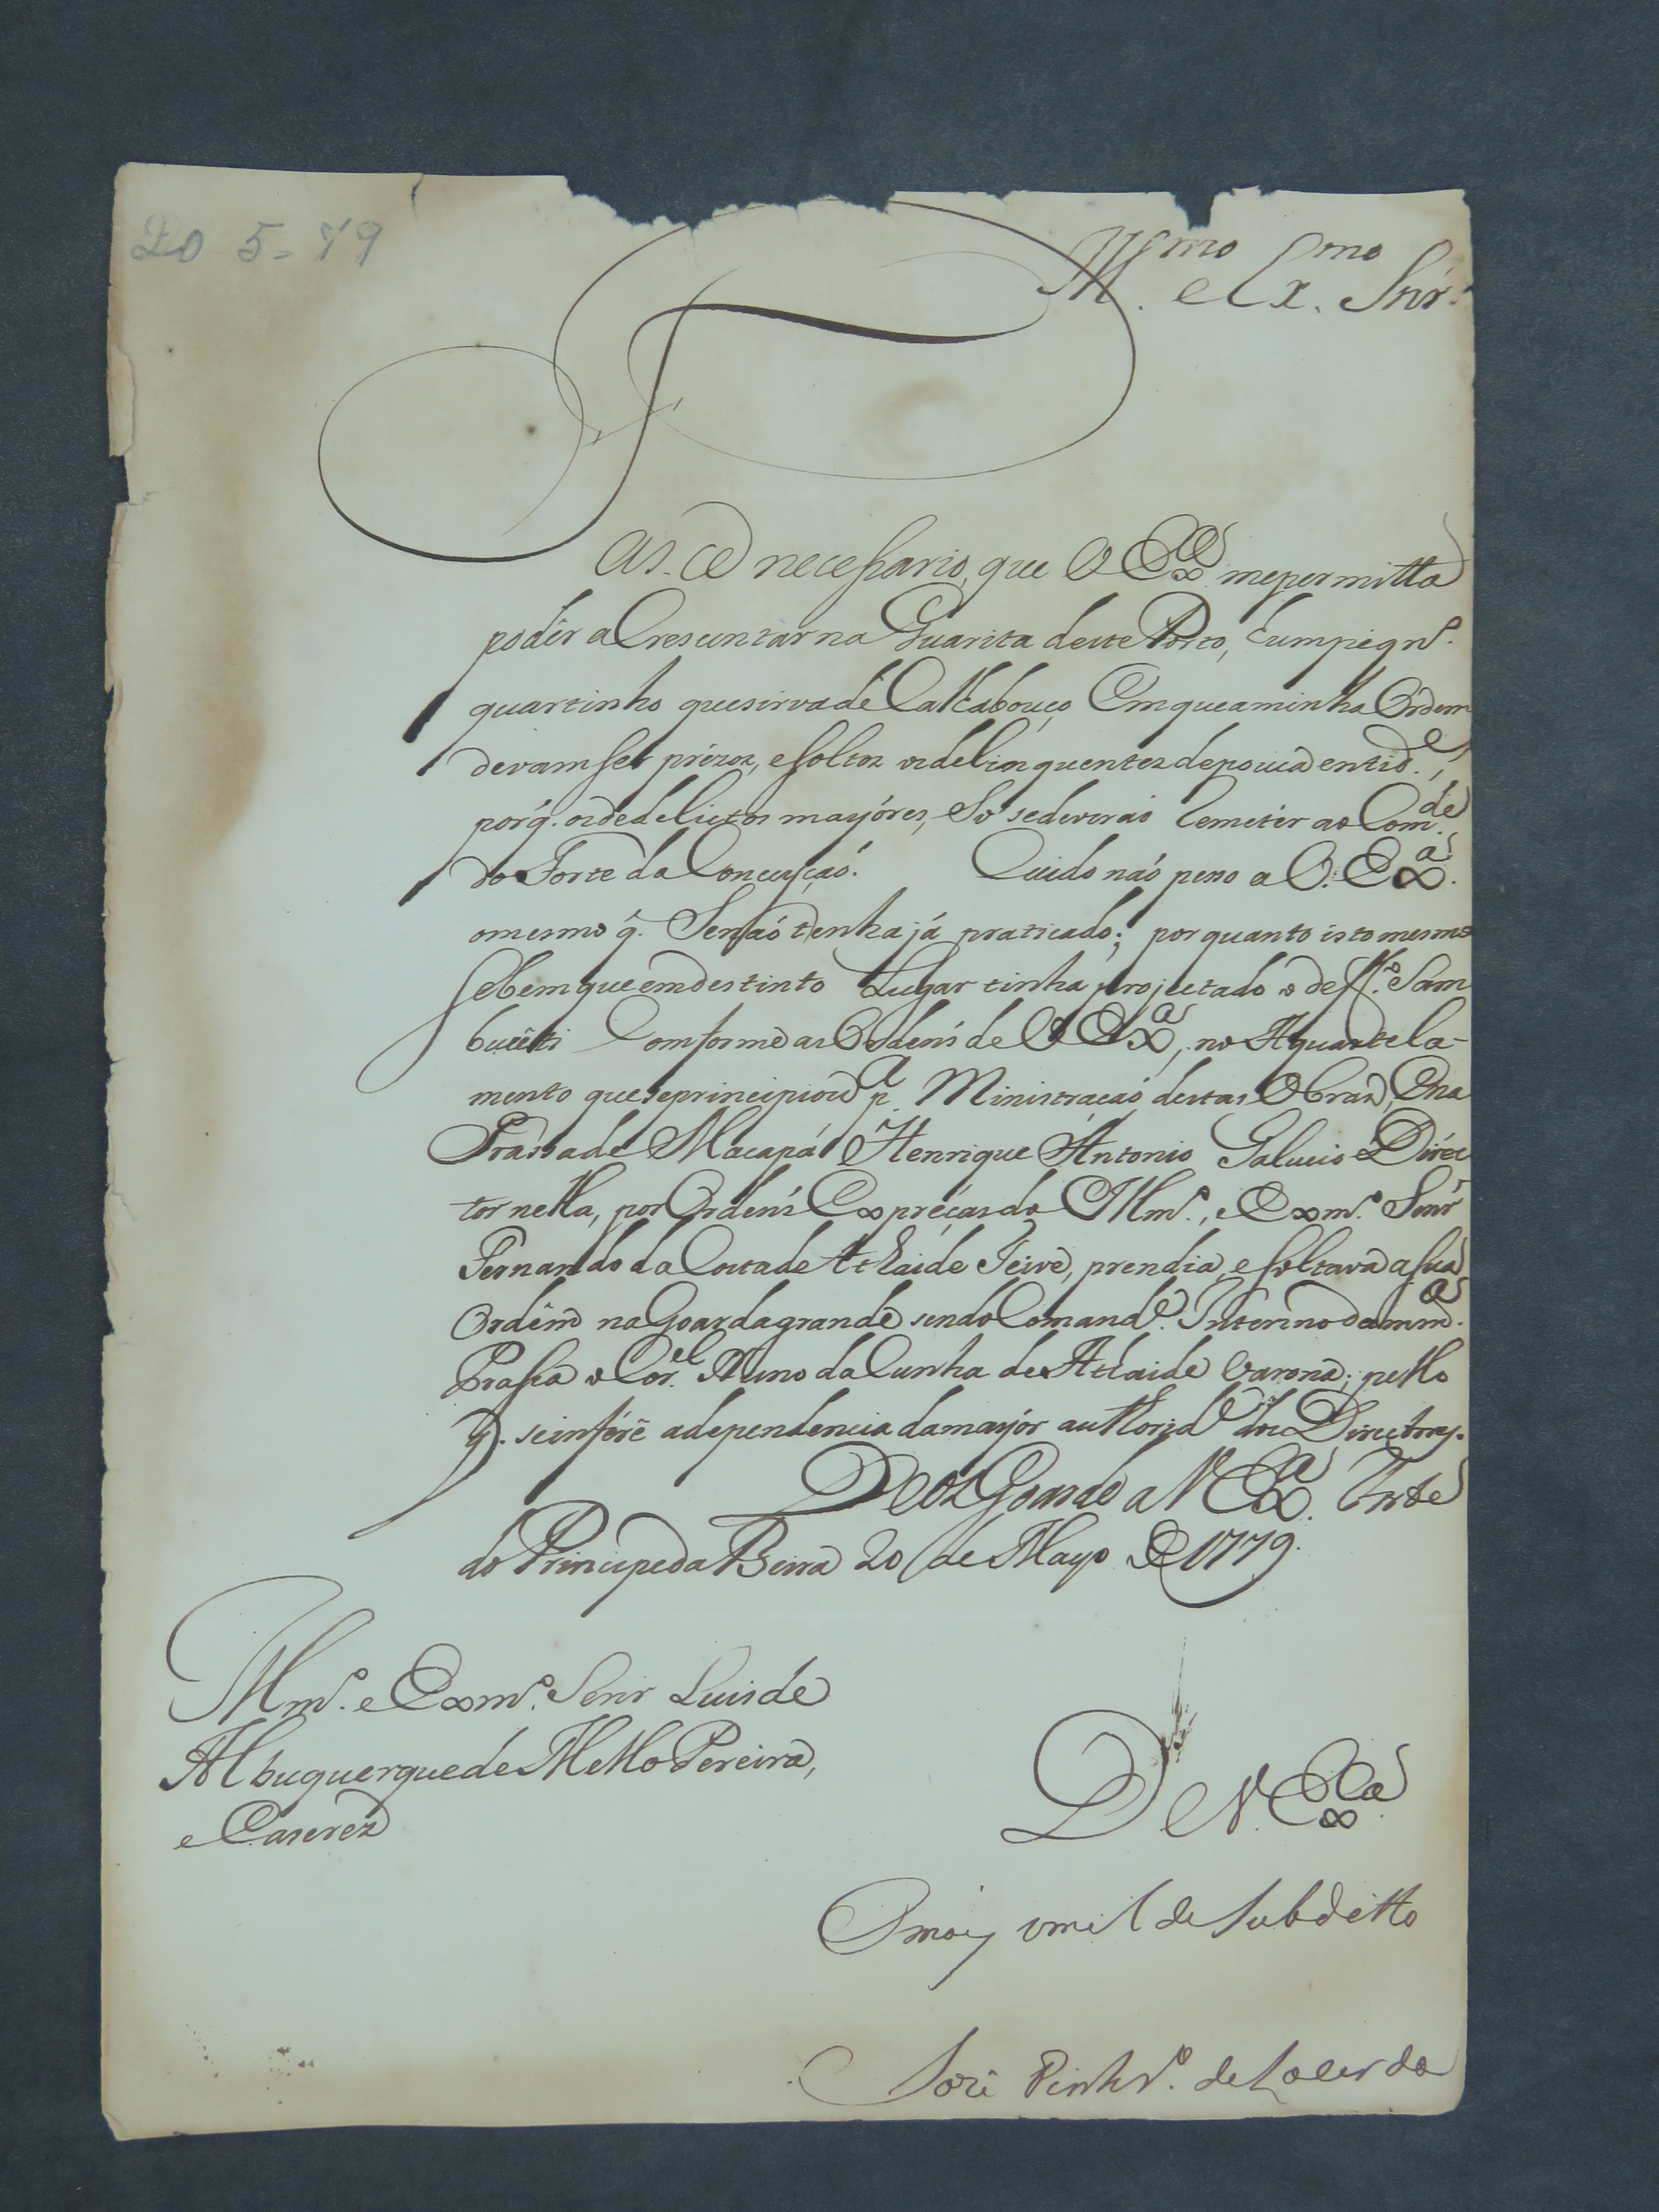 20 5-79
Ill.mo e Ex.mo Snr.
Fas-ce necessario, que V Ex.ca mepermitta
podêr aCresentar na Guarita deste Porto, hum piqn.o
quartinho que sirva de Callabouço Em que aminha Ordem
devam ser prezoz, e soltoz os delinquentez de pouca entid.e,
porq̃. os de delictos mayóres, Só se deverão Remeter ao Com.de
do Forte da Conceiçaó. Cuido naó peso a V. Ex.a
omesmo q̃. Senaó tenha já praticado; por quanto isto mesmo
Sebem que em destinto Lugar tinha projectado o def.to Sam
bucêti Comforme as Ordens de V Ex.a, no Aquartela-
mento que se principiou p.a Ministracaó destas Obras, Ena
Prassa de Macapá Henrique Antonio Galucio Diréc
tor nella, por Ordens Expréças do Illm.o, e Exm.o Senr
Fernando da Costa de Athaide Teive, prendia, e soltava a sua
Ordêm na Goarda grande sendo Comand.e Interino da mm.a
Prassa o Cor.el Nuno da Cunha de Athaide Varona; pello
q̃. se inférê a dependencia da mayór authorid.e dos Directorez.
Deoz Goarde a V Ex.a Forte
do Principe da Beira 20 de Mayo de 1779.
Illm.o e Exm.o Senr Luis de
Albuquerque de Mello Pereira,
e Caserez
De V. Ex.ca
O mais umilde Subditto
Jozê Pinhr.o de Lacerda